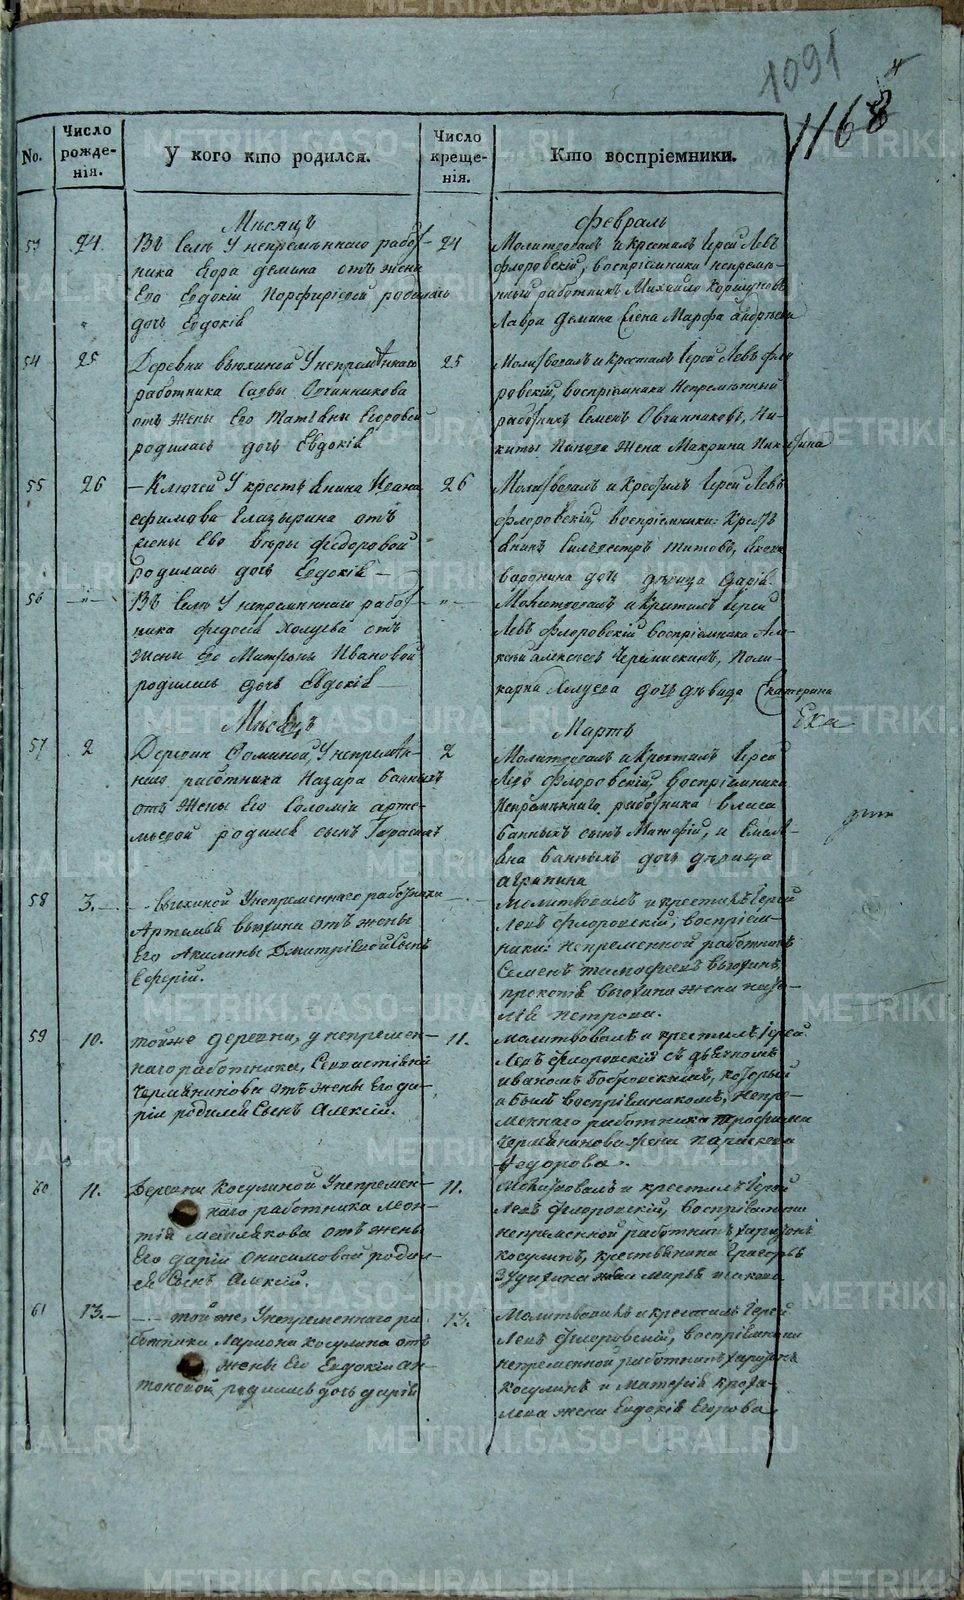 1091
1168
No.
Число рожде-нія.
У кого кто родился.
Число креще-нія.
Кто воспріемники.
Мѣсяцъ
Февраль
53
24
Въ Селѣ У непремѣннаго работ-
ника Егора Демина отъ жены
Его Евдокіи Порфирьевой родилась
дочь Евдокія
24
Молитвовалъ и крестилъ Іерей Левъ
Флоровскій, воспріемники непремѣ-
нный работникъ Михайло
Лавра Демина Марфа
54
25
Деревни Вьюхиной У непремѣннаго
работника Саввы Овчинникова
отъ жены Его Татіяны Егоровой
родилась дочь Евдокія
25
Молитвовалъ и крестилъ Іерей Левъ Фло-
ровскій, воспріемники Непремѣнный
работникъ Семенъ Овчинниковъ, Ни-
киты Попова жена Макрина
55
26
Ключей У крестьянина Ивана
Ефимова отъ
жены Ево Вѣры Федоровой
родилась дочь Евдокія
26
Молитвовалъ и крестилъ Іерей Левъ
Флоровскій, воспріемники: Кресть
янинъ Сильвестръ Титовъ,
дочь дѣвица Дарія
56
Въ Селѣ У непремѣннаго работ-
ника Федосѣя Холуева отъ
жены Его Матрены Ивановой
родилась дочь Евдокія
Молитвовалъ и Крестилъ Іерей
Левъ Флоровскій воспріемники Але-
ксѣй Алексѣевъ Черемискинъ, Поли-
карпа Холуева дочь дѣвица Екатерина
Мѣсяцъ
Мартъ
57
2
Деревни Фоминой У непремѣн-
наго работника Назара Банныхъ
отъ жены Его Соломіи Арте-
мьевой родился сынъ Герасимъ
2
Молитвовалъ и Крестилъ Іерей
Левъ Флоровскій, воспріемники
Непремѣннаго работника Власа
Банныхъ сынъ Матфій, и Емель-
яна Банныхъ дочь дѣвица
Агрипина
58
3.
Вьюхиной Унепременнаго работника
Артемья Вьюхина отъ жены
Его Акилины Дмитріевой Сынъ
Еферій.
Молитвовалъ и крестилъ Іерей
Левъ Флоровскій, воспріем-
ники: непременной работникъ
Семенъ Тимофеевъ Вьюхинъ,
Прокопья Вьюхина жена
Петрова.
59
10.
Тойже деревни, у непремен-
наго работника, Севастіяна
Черемянинова отъ жены Его Да-
ріи родился Сынъ Алексій.
11.
Молитвовалъ и крестилъ Іерей
Левъ Флоровскій съ дьячкомъ
Иваномъ Бобровскимъ, который
и былъ воспріемникомъ, непре-
меннаго работника Трофима
Черемянинова жена Параскева
Федорова.
60
11.
Деревни Косулиной Унепремен-
наго работника Леон-
тія отъ жены
Его Даріи Онисимовой родил-
ся Сынъ Алексій.
11.
Молитвовалъ и крестилъ Іерей
Левъ Флоровскій, воспріемники
непременной работникъ Харитонъ
Косулинъ, крестьянина Григорья
жена Марья
61
13.
той же, Унепременнаго ра-
ботника Лариона Косулина отъ
жены Его Евдокіи Ан-
тоновой родилась дочь Дарія
13.
Молитвовалъ и крестилъ Іерей
Левъ Флоровскій, воспріемники
непременной работникъ Харитонъ
Косулинъ и Матфія
жена Евдокія Егорова